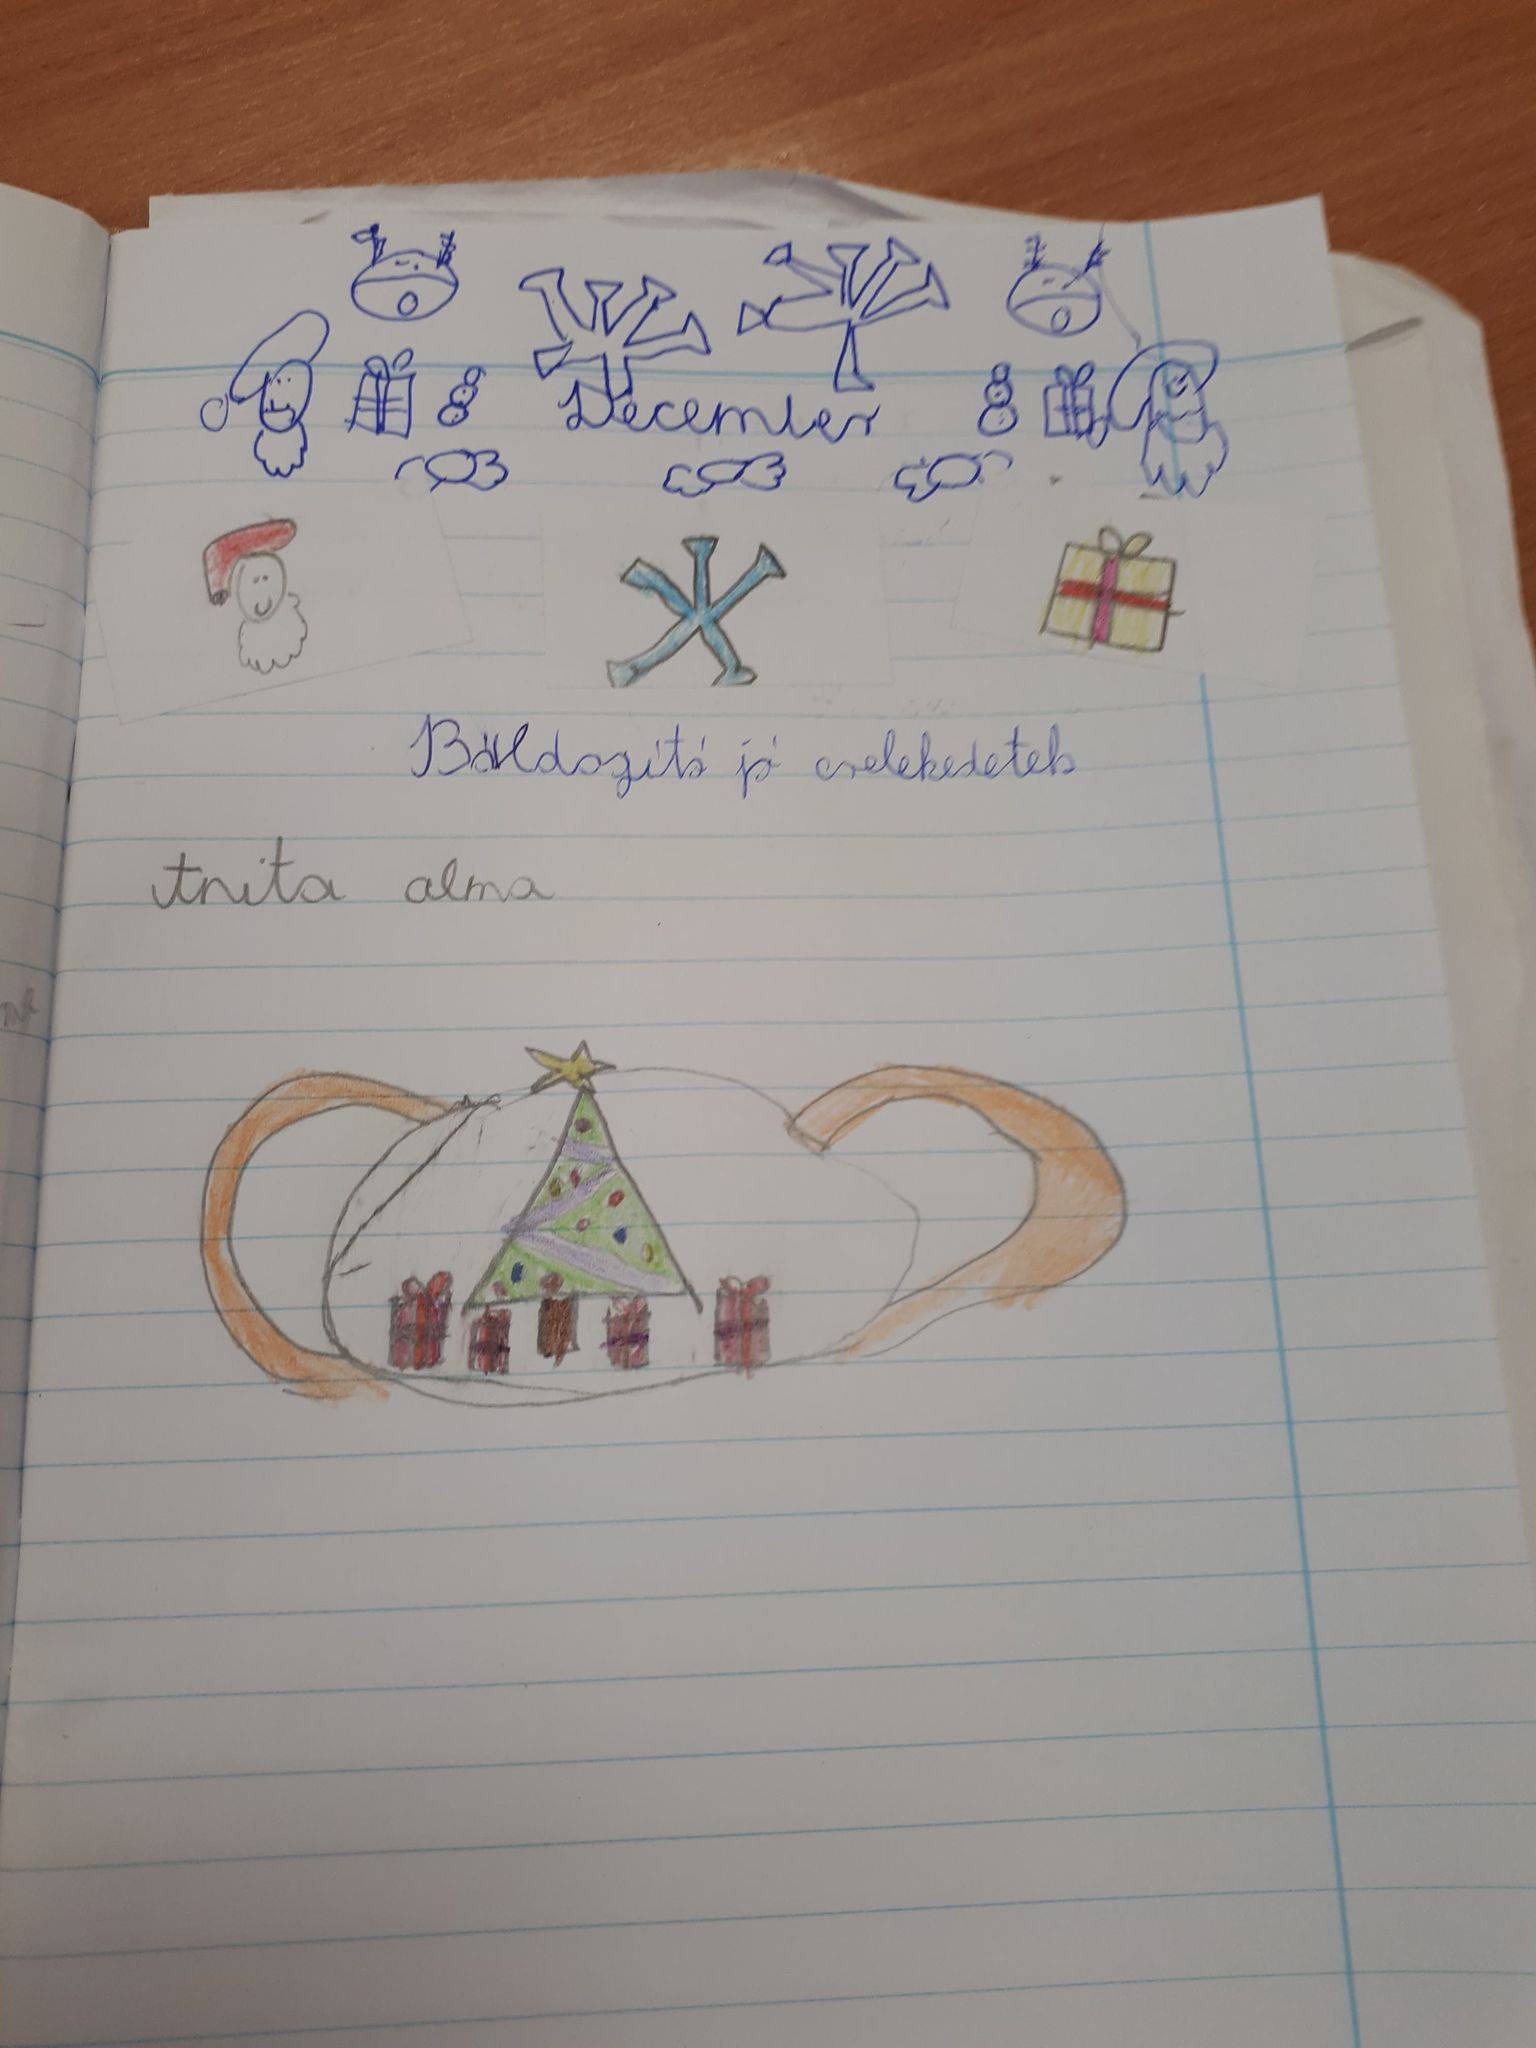 December
Báldozító jó cselekedetek
Anita alma